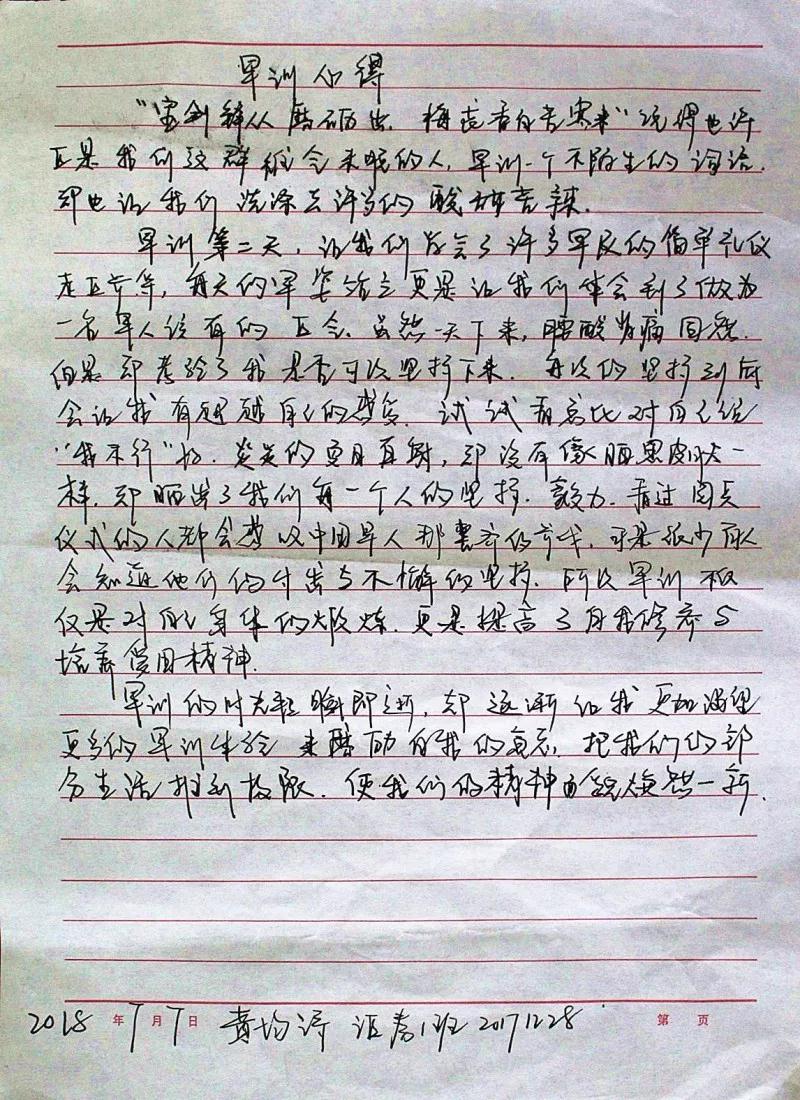 军训心得
"宝剑锋从磨砺出，梅花香自苦寒来"说得也许
正是我们这群的人，军训一个不陌生的词语，
却也让我们洗涤去许多的酸甜苦辣。
军训第二天，让我们学会了许多军民的简单礼仪
走正步等，每天的军姿站立更是让我们体会到了做为
一名军人该有的正念。虽然一天下来，腰酸背痛固然，
但是却考验了我是否可以坚持下来。每次的坚持到底
会让我有超越自己的感受。试试看总比对自己说
"我不行"好。炎炎的夏日直射，却没有像晒黑皮肤一
样，却晒出了我们每一个人的坚持、毅力。看过阅兵
仪式的人都会感叹中国军人那整齐的步伐，可是很少有人
会知道他们的付出与不懈的坚持。所以军训不仅
仅是对自己身体的煅炼，更是提高了自我修养与
培养爱国精神。
军训的时光短瞬即逝，却逐渐让我更加渴望
更多的军训体验来磨励自我的意志，把我们的部
分生活推到极限，使我们的精神面貌焕然一新。
2018年7月7日 黄均涛 1班 20171228
第 页